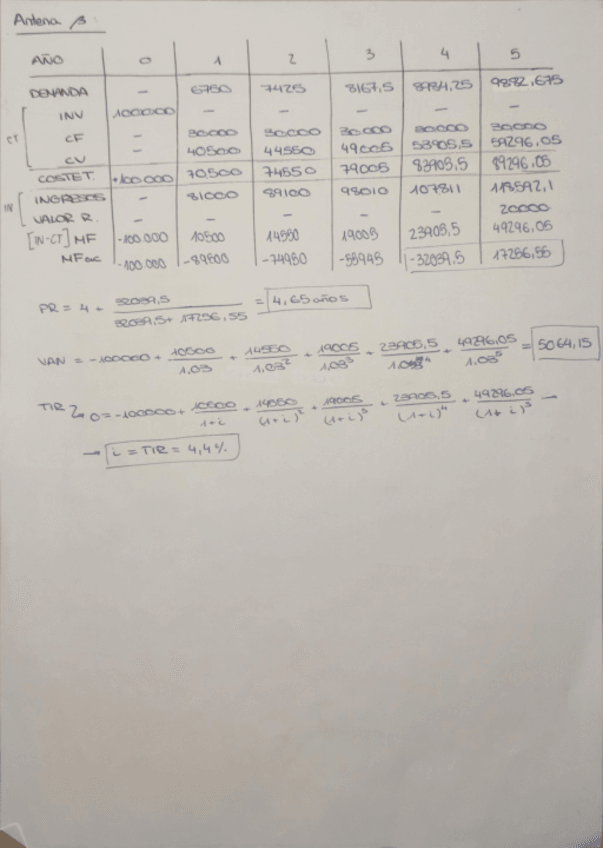 Antena β:
AÑO 0 1 2 3 4 5
DEMANDA - 6750 7425 8167,5 8984,25 9882,675
INV 100000 - - - - -
CT [ CF - 30000 30000 30.000 30000 30000
CV - 40500 44550 49005 53905,5 59296,05
COSTE T. +100.000 70500 74550 79005 83905,5 89296,05
IN [ INGRESOS - 81000 89100 98010 107811 118592,1
VALOR R. - - - - - 20000
[IN-CT] MF -100.000 10500 14550 19005 23905,5 49296,05
MFac -100.000 -89500 -74950 -55945 -32039,5 17256,55
PR = 4 + 32039,5 / 32039,5 + 17256,55 = 4,65 años
VAN = -100000 + 10500/1,03 + 14550/1,03² + 19005/1,03³ + 23905,5/1,03⁴ + 49296,05/1,03⁵ = 5064,15
TIR 0 = -100000 + 10500/1+i + 14550/(1+i)² + 19005/(1+i)³ + 23905,5/(1+i)⁴ + 49296,05/(1+i)⁵ →
→ i = TIR = 4,4%